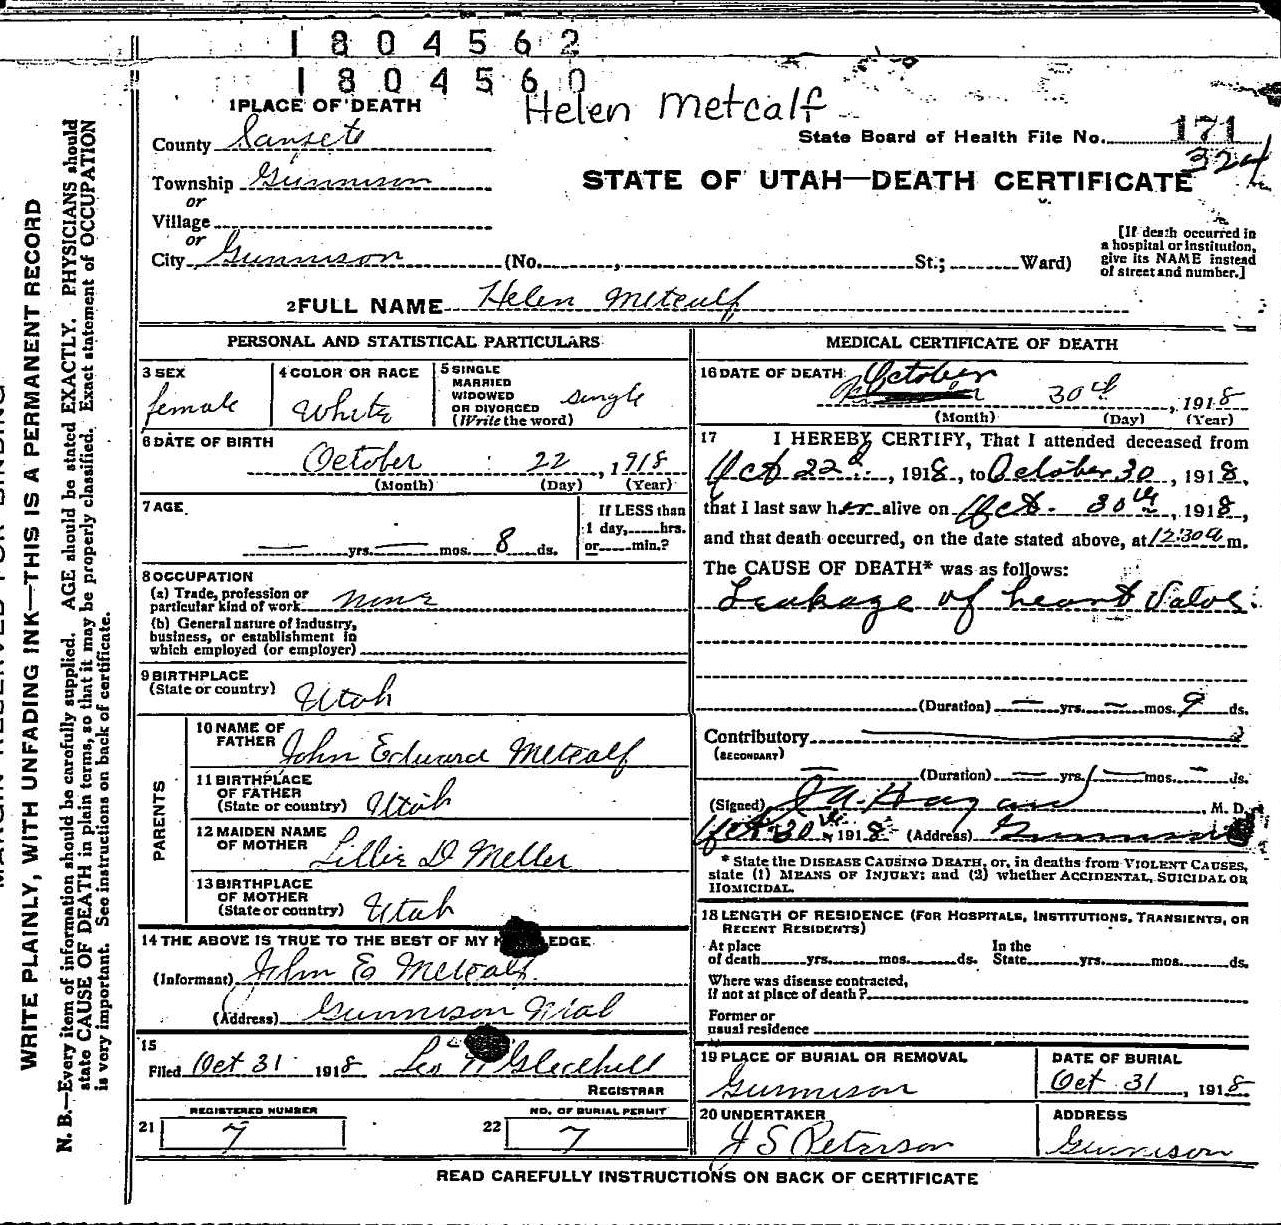 1804562
1804560
Helen Metcalf
1 PLACE OF DEATH
State Board of Health File No. 171
324
County Sanpete
Township Gunnison
STATE OF UTAH—DEATH CERTIFICATE
or
Village
or
City Gunnison (No. , St.; Ward)
[If death occurred in a hospital or institution, give its NAME instead of street and number.]
2 FULL NAME Helen Metcalf
PERSONAL AND STATISTICAL PARTICULARS
3 SEX female
4 COLOR OR RACE White
5 SINGLE MARRIED WIDOWED OR DIVORCED (Write the word) single
6 DATE OF BIRTH
October 22, 1918
(Month) (Day) (Year)
7 AGE
— yrs. — mos. 8 ds.
If LESS than 1 day, hrs. or min.?
8 OCCUPATION
(a) Trade, profession or particular kind of work none
(b) General nature of industry, business, or establishment in which employed (or employer)
9 BIRTHPLACE
(State or country) Utah
PARENTS
10 NAME OF FATHER John Edward Metcalf
11 BIRTHPLACE OF FATHER (State or country) Utah
12 MAIDEN NAME OF MOTHER Lillie D Meller
13 BIRTHPLACE OF MOTHER (State or country) Utah
14 THE ABOVE IS TRUE TO THE BEST OF MY
(Informant) John E Metcalf
(Address) Gunnison
15
Filed Oct 31 1918 Leo Gledhill
REGISTRAR
REGISTERED NUMBER
21 7
NO. OF BURIAL PERMIT
22 7
MEDICAL CERTIFICATE OF DEATH
16 DATE OF DEATH October 30th, 1918
(Month) (Day) (Year)
17 I HEREBY CERTIFY, That I attended deceased from
Oct 22d, 1918, to October 30, 1918,
that I last saw her alive on Oct. 30th, 1918,
and that death occurred, on the date stated above, at 12:30 a m.
The CAUSE OF DEATH* was as follows:
Leakage of heart Valve.
(Duration) — yrs. — mos. 9 ds.
Contributory
(SECONDARY)
(Duration) — yrs. — mos. — ds.
(Signed) Hagan, M. D.
Oct 30th, 1918 (Address) Gunnison
* State the DISEASE CAUSING DEATH, or, in deaths from VIOLENT CAUSES,
state (1) MEANS OF INJURY; and (2) whether ACCIDENTAL, SUICIDAL OR
HOMICIDAL.
18 LENGTH OF RESIDENCE (FOR HOSPITALS, INSTITUTIONS, TRANSIENTS, OR
RECENT RESIDENTS)
At place of death yrs. mos. ds. In the State yrs. mos. ds.
Where was disease contracted,
if not at place of death?
Former or
usual residence
19 PLACE OF BURIAL OR REMOVAL
Gunnison
DATE OF BURIAL
Oct 31, 1918
20 UNDERTAKER
J S Peterson
ADDRESS
Gunnison
READ CAREFULLY INSTRUCTIONS ON BACK OF CERTIFICATE
WRITE PLAINLY, WITH UNFADING INK—THIS IS A PERMANENT RECORD
N. B.—Every item of information should be carefully supplied. AGE should be stated EXACTLY. PHYSICIANS should
state CAUSE OF DEATH in plain terms, so that it may be properly classified. Exact statement of OCCUPATION
is very important. See instructions on back of certificate.